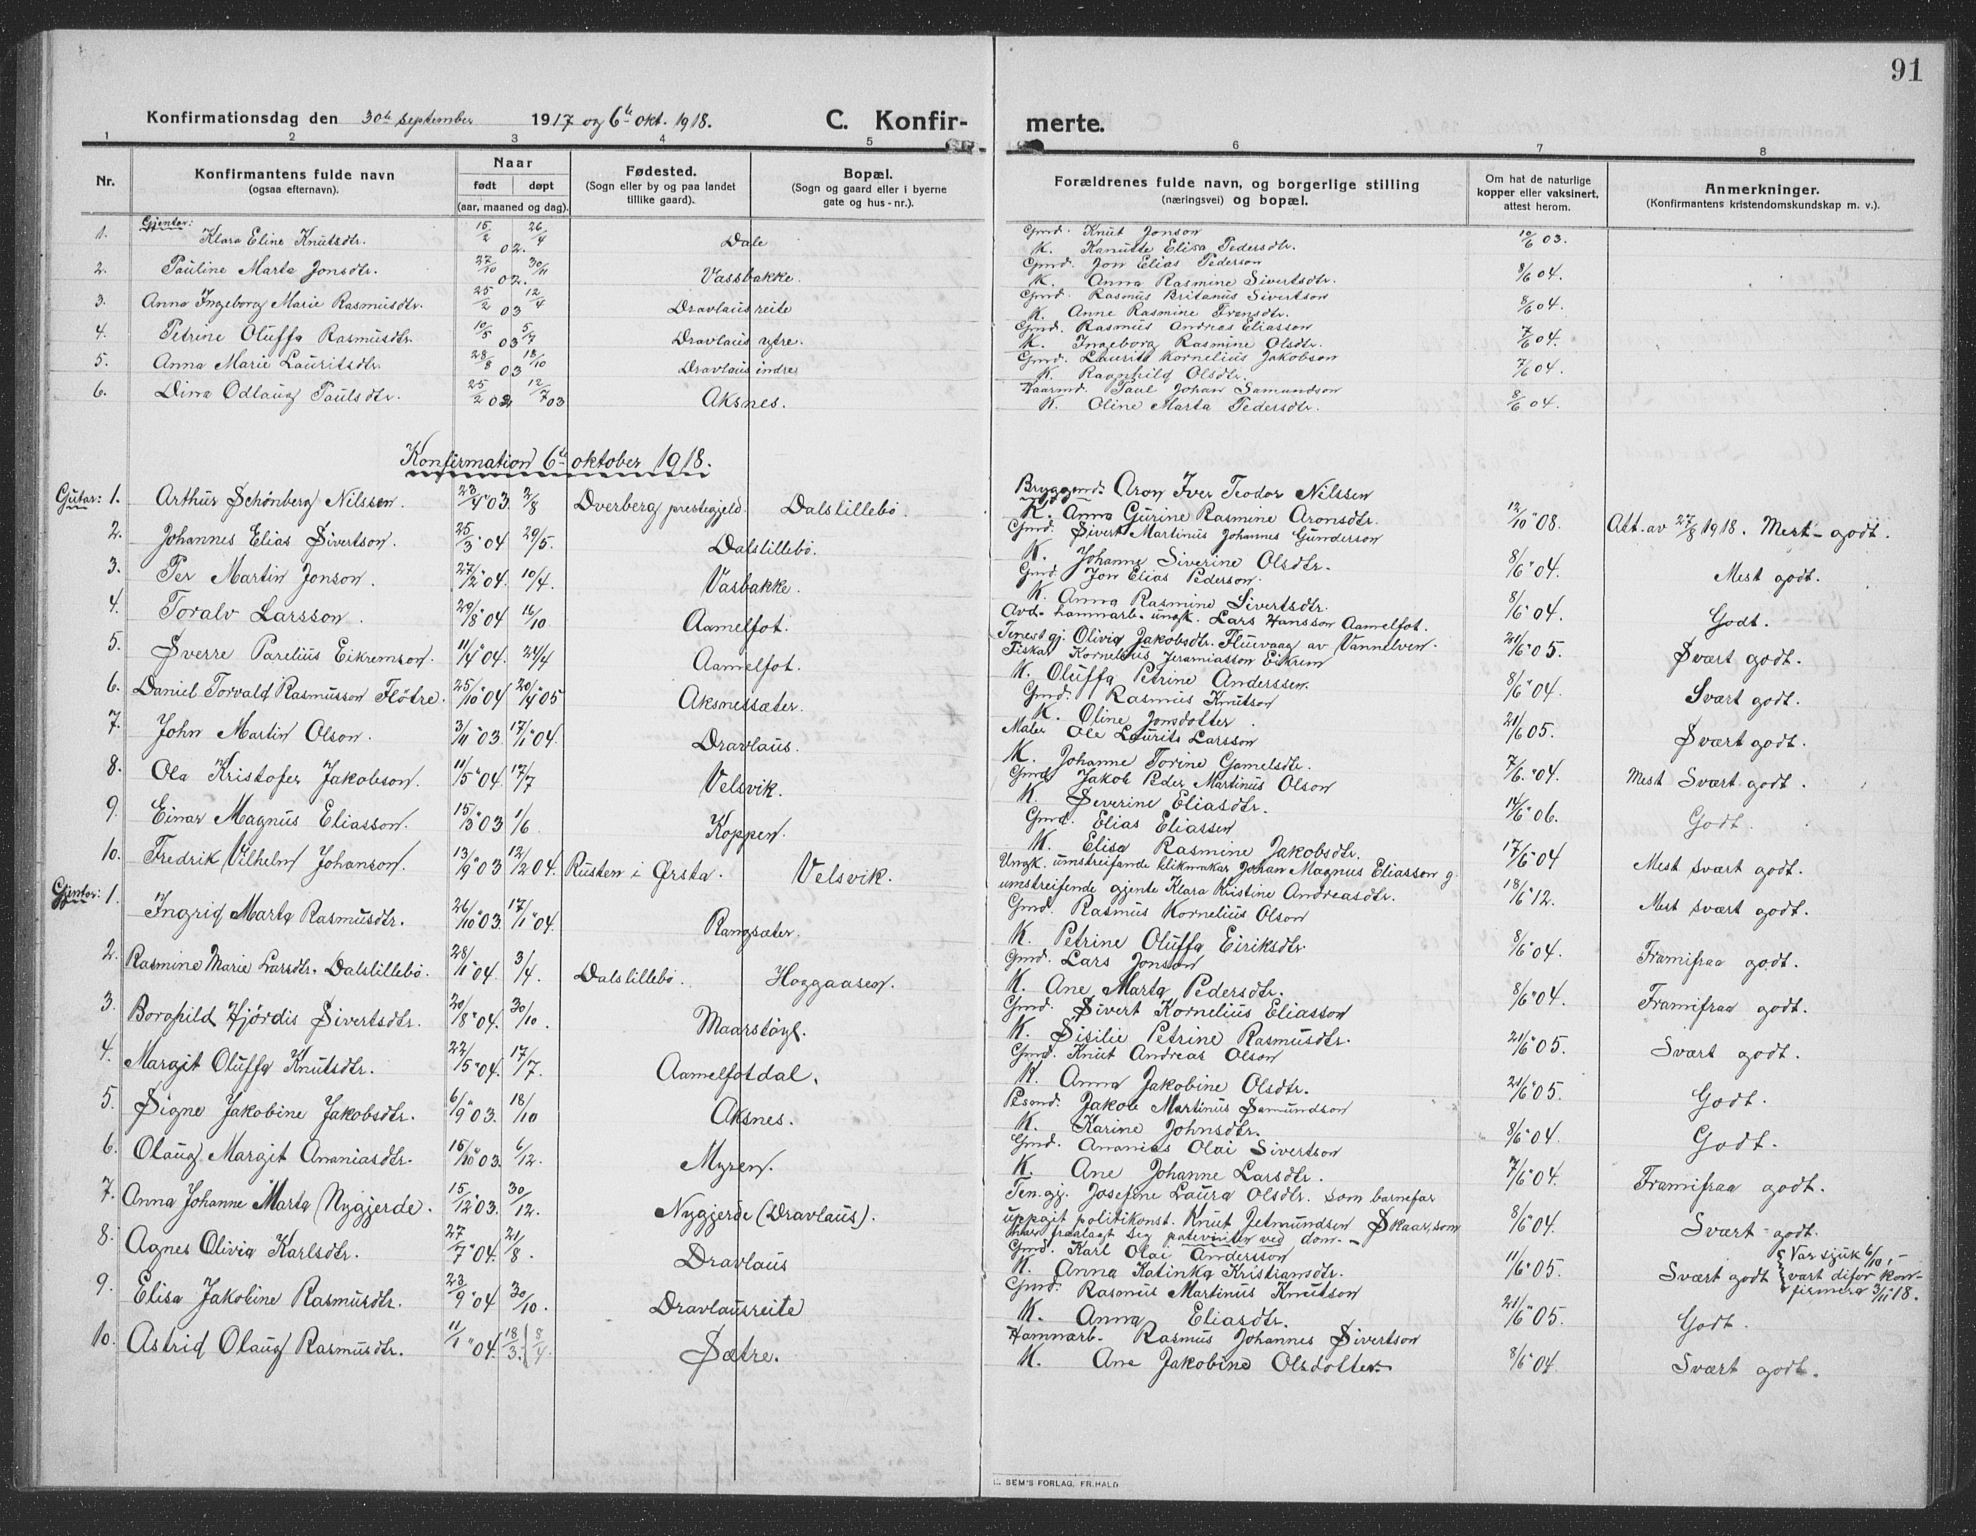 91
Konfirmationsdag den 30te september 1917 og 6te okt. 1918. C. Konfir- merte.
1 2 3 4 5 6 7 8
Nr. Konfirmantens fulde navn (ogsaa efternavn). Naar født døpt (aar, maaned og dag). Fødested. (Sogn eller by og paa landet tillike gaard). Bopæl. (Sogn og gaard eller i byerne gate og hus-nr.). Forældrenes fulde navn, og borgerlige stilling (næringsvei) og bopæl. Om hat de naturlige kopper eller vaksinert, attest herom. Anmerkninger. (Konfirmantens kristendomskundskap m. v.).
Gjentor:
1. Klara Eline Knutsdtr. 15/2 02. 26/4 Dale Gmd. Knut Jonson K. Kanutte Elisa Pedersdtr. 10/6 03.
2. Pauline Marta Jonsdtr. 27/10 02. 30/11 Vassbakke. Gmd. Jon Elias Pederson K. Anna Rasmine Sivertsdtr. 8/6 04.
3. Anna Ingeborg Marie Rasmusdtr. 25/2 03 12/4 Dravlausreite Gmd. Rasmus Britanus Sivertson K. Anne Rasmine Fransdtr. 8/6 04.
4. Petrine Oluffa Rasmusdtr. 10/5 03 5/7 Dravlaus ytre. Gmd. Rasmus Andreas Eliasson K. Ingeborg Rasmine Olsdtr. 7/6 04.
5. Anna Marie Lauritsdtr. 28/8 03 18/10 Dravlaus indre Gmd. Laurits Kornelius Jakobson K. Ragnhild Olsdtr. 7/6 04.
6. Dina Odlaug Paulsdtr. 25/2 03 12/7 03 Aksnes. Haarmd. Paul Johan Samundson K. Oline Marta Pedersdtr. 8/6 04.
Konfirmation 6te oktober 1918.
Gutar: 1. Arthur Schönberg Nilssen. 23/4 03. 2/8 Dverberg prestegjeld. Dalslillebø. Bryggemd. Aron Iver Teodor Nilssen K. Anna Gurine Rasmine Aronsdtr. 12/10 08. Att. av 27/8 1918. Mest-godt.
2. Johannes Elias Sivertson. 25/3 04 29/5. Dalslillebø. Gmd. Sivert Martinus Johannes Gunderson K. Johanne Siverine Olsdtr. 8/6 04. Mest godt.
3. Per Martin Jonson. 27/2 04. 10/4. Vasbakke. Gmd. Jon Elias Pederson. K. Anna Rasmine Sivertsdtr. 8/6 04. Godt.
4. Toralv Larsson. 29/8 04 16/10. Aamelfot. Avd. hammarb. ungk. Lars Hansson Aamelfot. Tenestgj. Olivia Jakobsdtr. Fluevaag av Vannelven. 21/6 05. Svært godt.
5. Sverre Parelius Eikremson. 11/4 04. 24/4 Aamelfot. Fiskar Kornelius Jeramiasson Eikrem K. Oluffa Petrine Anderssen. 8/6 04. Svært godt.
6. Daniel Torvald Rasmusson Fløtre. 25/10 04 20/4 05 Aksnessæter. Gmd. Rasmus Knutson K. Oline Jonsdotter. 21/6 05. Svært godt.
7. John Martin Olson. 3/11 03. 17/1 04. Dravlaus. Maler Ole Laurits Larsson K. Johanne Torine Gamelsdtr. 7/6 04. Mest Svært godt.
8. Ola Kristofer Jakobson. 11/5 04. 17/7 Velsvik. Gmd. Jakob Peder Martinus Olson K. Severine Eliasdtr. 14/6 06. Godt.
9. Einar Magnus Eliasson. 15/3 03 1/6. Koppen. Gmd. Elias Eliassen K. Elisa Rasmine Jakobsdtr. 17/6 04 Mest svært godt.
10. Fredrik Vilhelm Johanson. 13/9 03 12/12 04. Rusten i Ørsta. Velsvik. Ungk. umstreifande blikmakar Johan Magnus Eliasson g. umstreifende gjente Klara Kristine Andreasdtr. 18/6 12. Mest svært godt.
Gjentor: 1. Ingrid Marta Rasmusdtr. 26/10 03. 17/1 04. Rangsæter. Gmd. Rasmus Kornelius Olson K. Petrine Oluffa Eiriksdtr. 8/6 04. Framifraa godt.
2. Rasmine Marie Larsdtr. Dalslillebø. 28/1 04. 3/4. Dalslillebø. Hoggaasen. Gmd. Lars Jonson K. Ane Marta Pedersdtr. 8/6 04. Framifraa godt.
3. Borghild Hjördis Sivertsdtr. 20/8 04. 30/10. Maarstøyl. Gmd. Sivert Kornelius Eliasson K. Sisilie Petrine Rasmusdtr. 21/6 05. Svært godt.
4. Margit Oluffa Knutsdtr. 22/5 04. 17/7. Aamelfotdal. Gmd. Knut Andreas Olson K. Anna Jakobine Olsdtr. 21/6 05. Godt.
5. Signe Jakobine Jakobsdtr. 6/9 03. 18/10 Aksnes. Pesmd. Jakob Martinus Samundson K. Karine Johnsdtr. 8/6 04. Godt.
6. Olaug Margit Ananiasdtr. 15/10 03. 6/12. Myren. Gmd. Ananias Olai Sivertson K. Ane Johanne Larsdtr. 7/6 04. Framifraa godt.
7. Anna Johanne Marta Nygjerde. 15/12 03. 30/12. Nygjerde (Dravlaus). Ten.gj. Josefine Laura Olsdtr. som barnefar uppgit politikonst. Knut Jetmundsen Skaar, som hever fraalagt sig patevinten ved dom. - 8/6 04. Svært godt.
8. Agnes Olivia Karlsdtr. 27/7 04. 21/8. Dravlaus Gmd. Karl Olai Andersson K. Anna Katinka Kristiansdtr. 11/6 05. Svært godt { Var sjuk 6/10, - vart difor konfirmera 3/11 18.
9. Elisa Jakobine Rasmusdtr. 23/9 04 30/10. Dravlausreite Gmd. Rasmus Martinus Knutson K. Anna Eliasdtr. 21/6 05. Godt.
10. Astrid Olaug Rasmusdtr. 11/1 04. 18/3. { 8/4 Sætre. Hammarb. Rasmus Johannes Sivertson K. Ane Jakobine Olsdotter. 8/6 04. Svært godt.
SEM'S FORLAG, FR.HALD